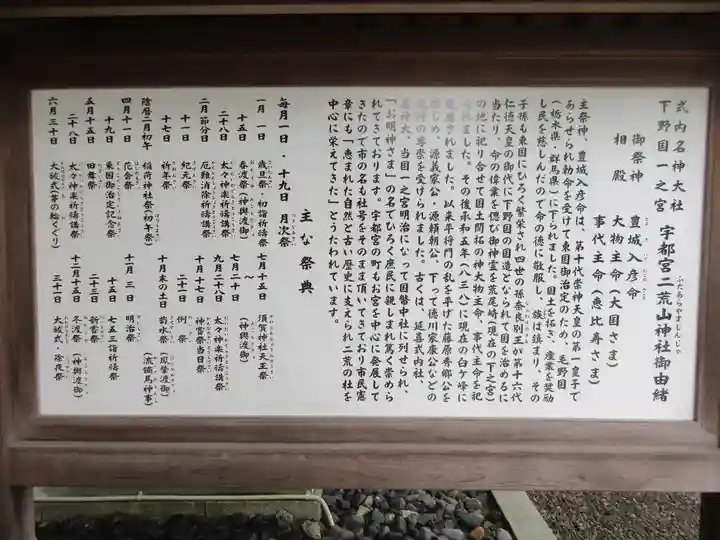 式内名神大社
下野国一之宮 宇都宮二荒山神社御由緒
ふたあらやまじんじゃ
御祭神 豊城入彦命
相殿 大物主命（大国さま）
事代主命（恵比寿さま）
主祭神、豊城入彦命は、第十代崇神天皇の第一皇子で
あらせられ勅命を受けて東国御治定のため、毛野国
（栃木県・群馬県）に下られました。国土を拓き、産業を奨励
し民を慈しんだので命の徳に敬服し、族は鎮まり、その
子孫も東国にひろく繁栄され四世の孫奈良別王が第十六代
仁徳天皇の御代に下野国の国造となられて国を治めるに
当たり、命の偉業を偲び御神霊を荒尾崎（現在の下之宮）
の地に祀り合せて国土開拓の神大物主命・事代主命を祀
られました。その後承和五年（八三八）に現在の臼ヶ峰に
遷座されました。以来平将門の乱を平げた藤原秀郷公を
はじめ、源義家公・源頼朝公、下って徳川家康公などの
武将の尊崇を受けられました。古くは、延喜式内社
名神大、当国一之宮明治になって国幣中社に列せられ、
「お明神さま」の名でひろく庶民に親しまれ篤く崇めら
れてきております。宇都宮の町もお宮を中心に発展して
きたので市の名も社号をそのまま頂いてきており市民憲
章にも「恵まれた自然と古い歴史に支えられ二荒の杜を
中心に栄えてきた」とうたわれています。
主な祭典
毎月一日・十九日 月次祭
一月一日 歳旦祭・初詣祈祷祭
十五日 春渡祭（神輿渡御）
二十八日 太々神楽祈祷講祭
二月節分日 厄難消除祈祷講祭
十一日 紀元祭
十七日 祈年祭
陰暦二月初午 稲荷神社祭（初午祭）
四月十一日 花会祭
十九日 東国御治定記念祭
五月十五日 田舞祭
二十八日 太々神楽祈祷講祭
六月三十日 大祓式（茅の輪くぐり）
七月十五日 須賀神社天王祭
〜
七月二十日 （神輿渡御）
九月二十八日 太々神楽祈祷講祭
十月十七日 神嘗祭当日祭
二十一日 例祭
十月末の土日 菊水祭（鳳輦渡御）
（流鏑馬神事）
十一月三日 明治祭
十五日 七五三詣祈祷祭
二十三日 新嘗祭
十二月十五日 冬渡祭（神輿渡御）
三十一日 大祓式・除夜祭